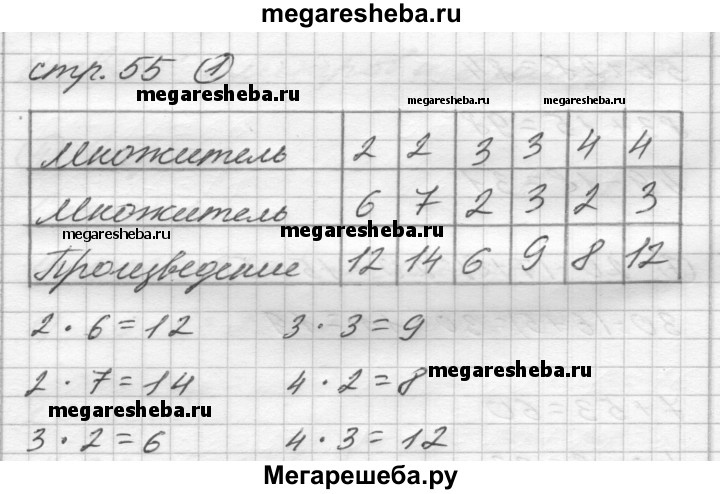 megaresheba.ru
стр. 55 1
megaresheba.ru
megaresheba.ru megaresheba.ru
Множитель 2 2 3 3 4 4
Множитель 6 7 2 3 2 3
megaresheba.ru megaresheba.ru
Произведение 12 14 6 9 8 12
2 · 6 = 12 3 · 3 = 9
2 · 7 = 14 4 · 2 = 8
megaresheba.ru
megaresheba.ru
3 · 2 = 6 4 · 3 = 12
Мегарешеба.ру